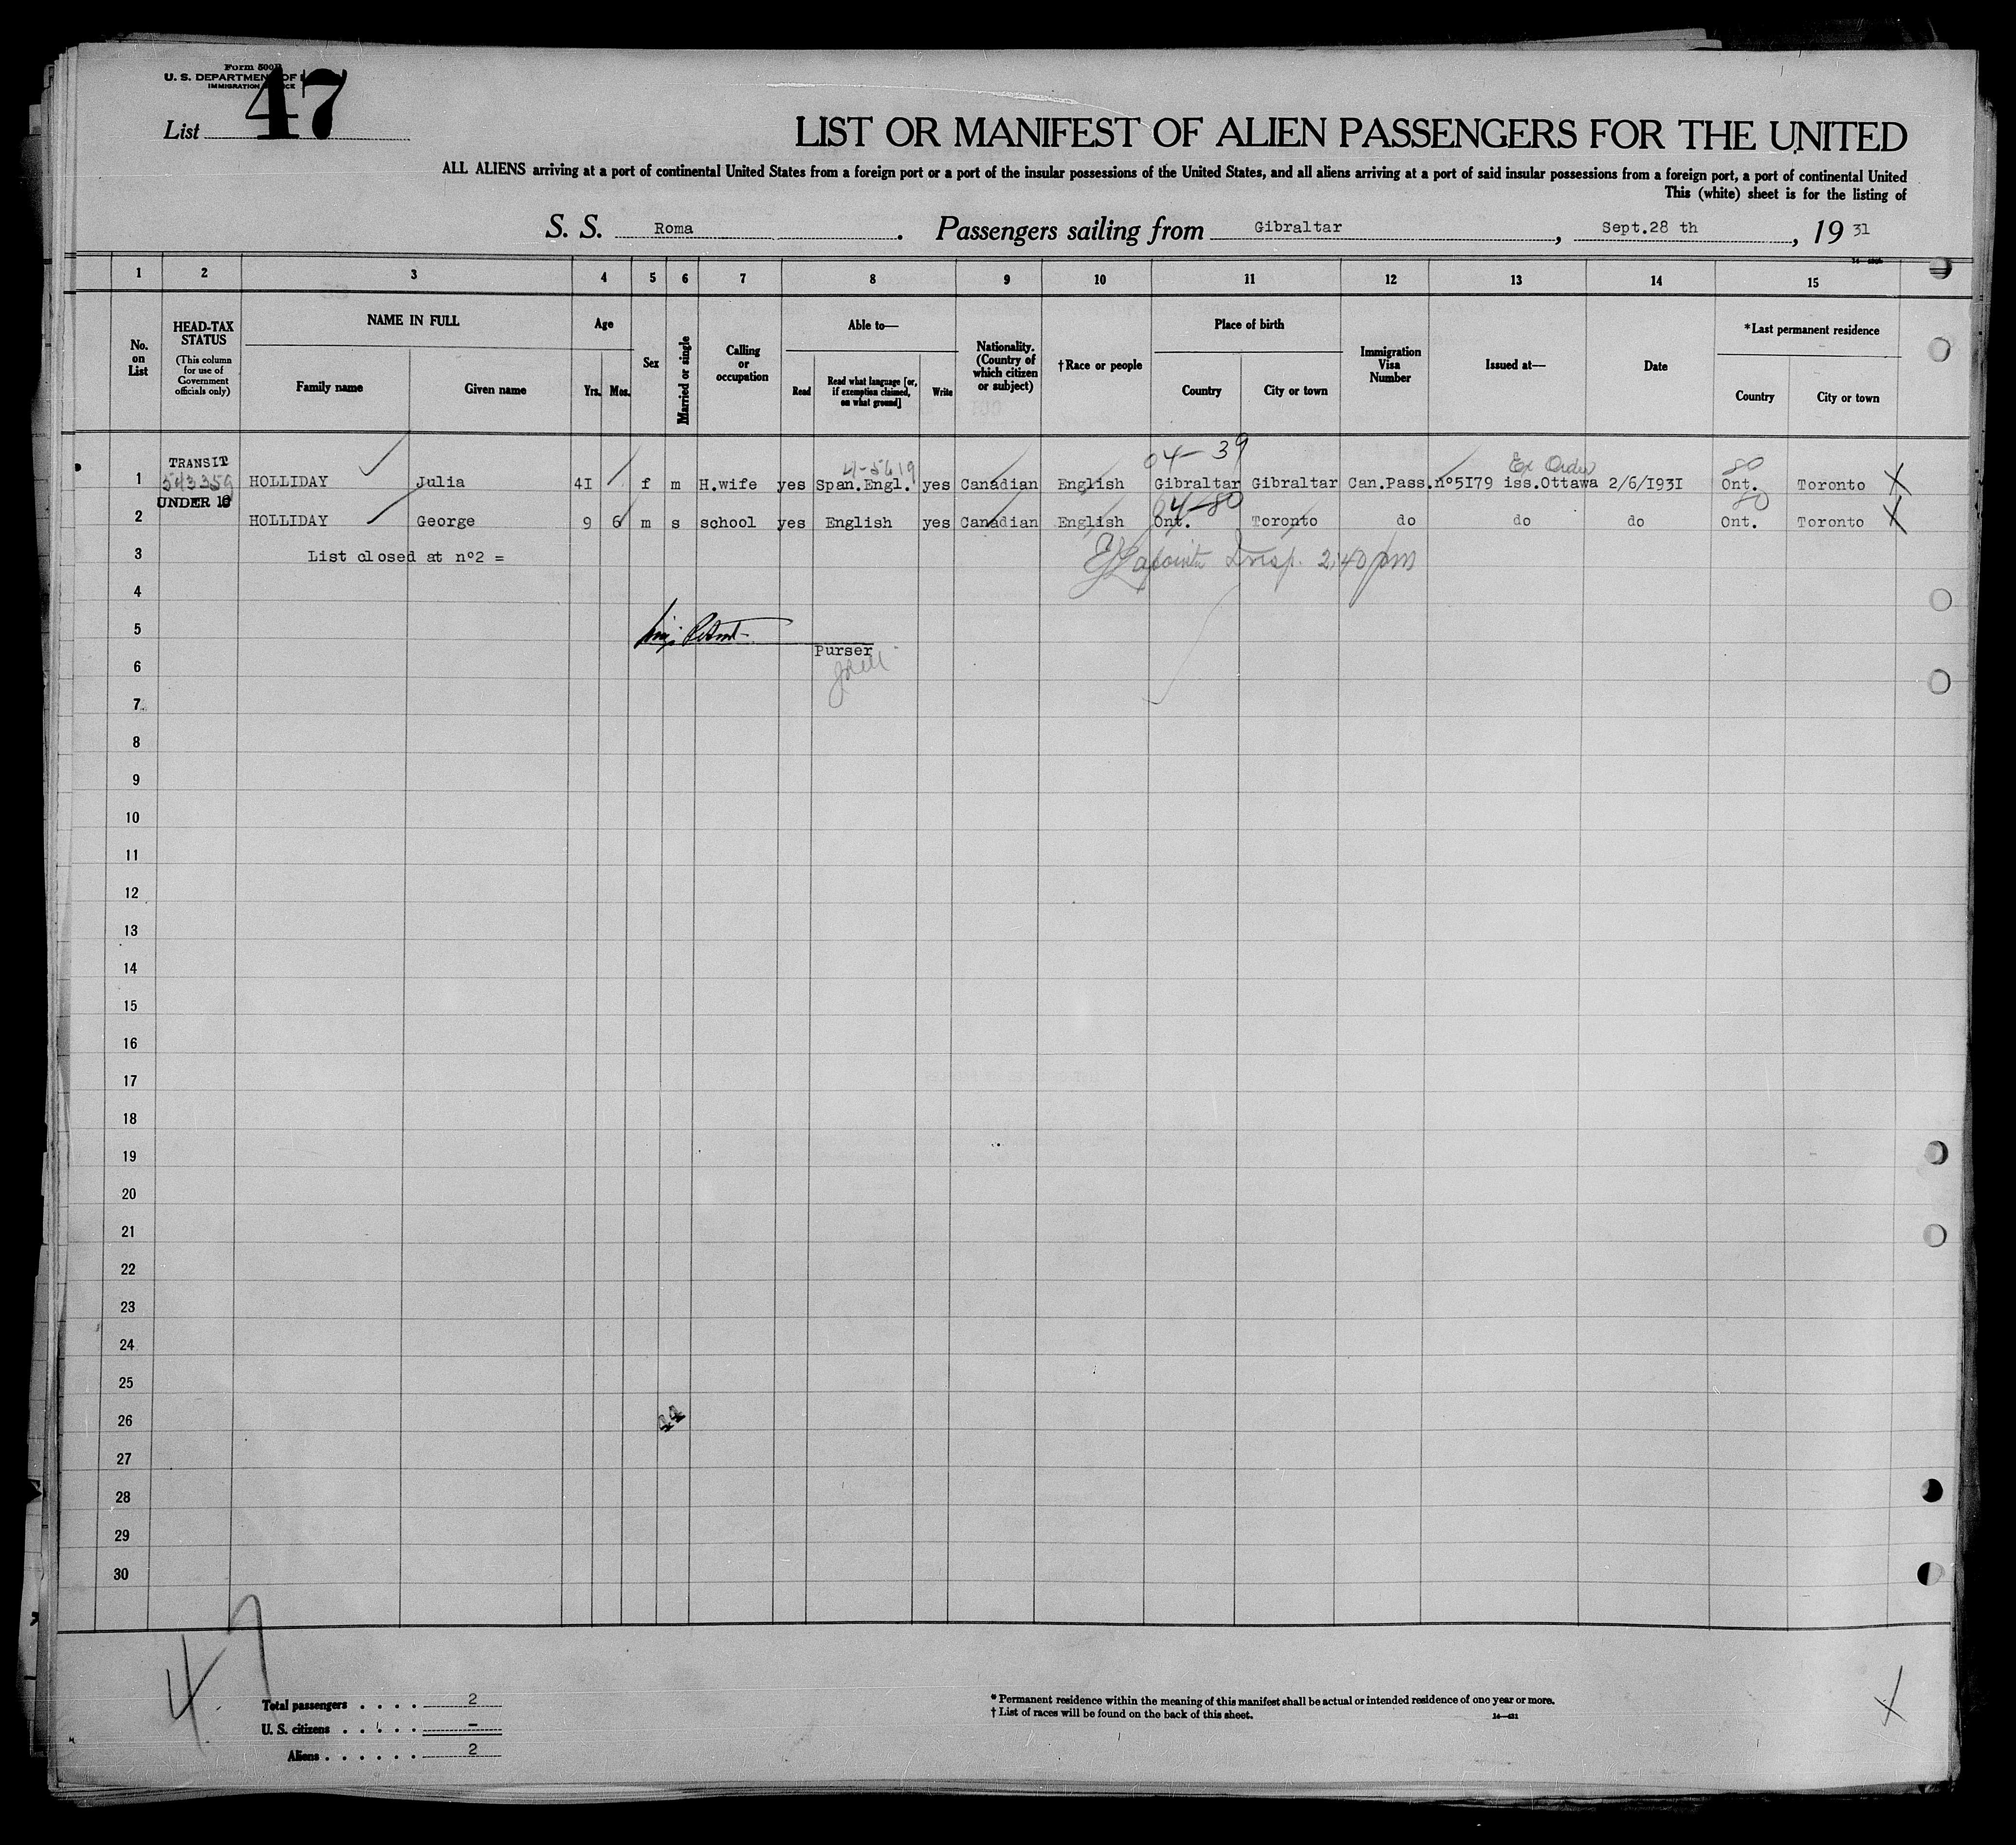 Form 500B
U. S. DEPARTMENT OF
IMMIGRATION
List 47
LIST OR MANIFEST OF ALIEN PASSENGERS FOR THE UNITED
ALL ALIENS arriving at a port of continental United States from a foreign port or a port of the insular possessions of the United States, and all aliens arriving at a port of said insular possessions from a foreign port, a port of continental United
This (white) sheet is for the listing of
S. S. Roma . Passengers sailing from Gibraltar , Sept.28 th , 19 31
1 2 3 4 5 6 7 8 9 10 11 12 13 14 15
No. on List
HEAD-TAX STATUS (This column for use of Government officials only)
NAME IN FULL
Family name Given name
Age
Yrs. Mos.
Sex
Married or single
Calling or occupation
Able to—
Read Read what language [or, if exemption claimed, on what ground] Write
Nationality. (Country of which citizen or subject)
†Race or people
Place of birth
Country City or town
Immigration Visa Number
Issued at—
Date
*Last permanent residence
Country City or town
04-39
TRANSIT 4-5619 Ex Order 80
1 543359 HOLLIDAY Julia 4I f m H.wife yes Span.Engl. yes Canadian English Gibraltar Gibraltar Can.Pass.nº5I79 iss.Ottawa 2/6/I93I Ont. Toronto X
UNDER 10 04-80 80
2 HOLLIDAY George 9 6 m s school yes English yes Canadian English Ont. Toronto do do do Ont. Toronto X
3 List closed at nº2 =
Lapointe Insp. 2:40 pm
4
5
Purser
6
7
8
9
10
11
12
13
14
15
16
17
18
19
20
21
22
23
24
25
26 44
27
28
29
30
47
Total passengers . . . . 2
U. S. citizens . . . . . —
Aliens . . . . . . 2
* Permanent residence within the meaning of this manifest shall be actual or intended residence of one year or more.
† List of races will be found on the back of this sheet.
X